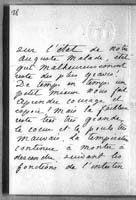 sur l'état de notre
auguste malade, état
qui malheureusement
reste des plus graves.
De temps en temps un
petit mieux nous fait
reprendre courage et
espoir, mais la faiblesse
reste très très grande,
le cœur et le pouls
mauvais. La température
continue à monter à
descendre, suivant les
fonctions de l'intestin